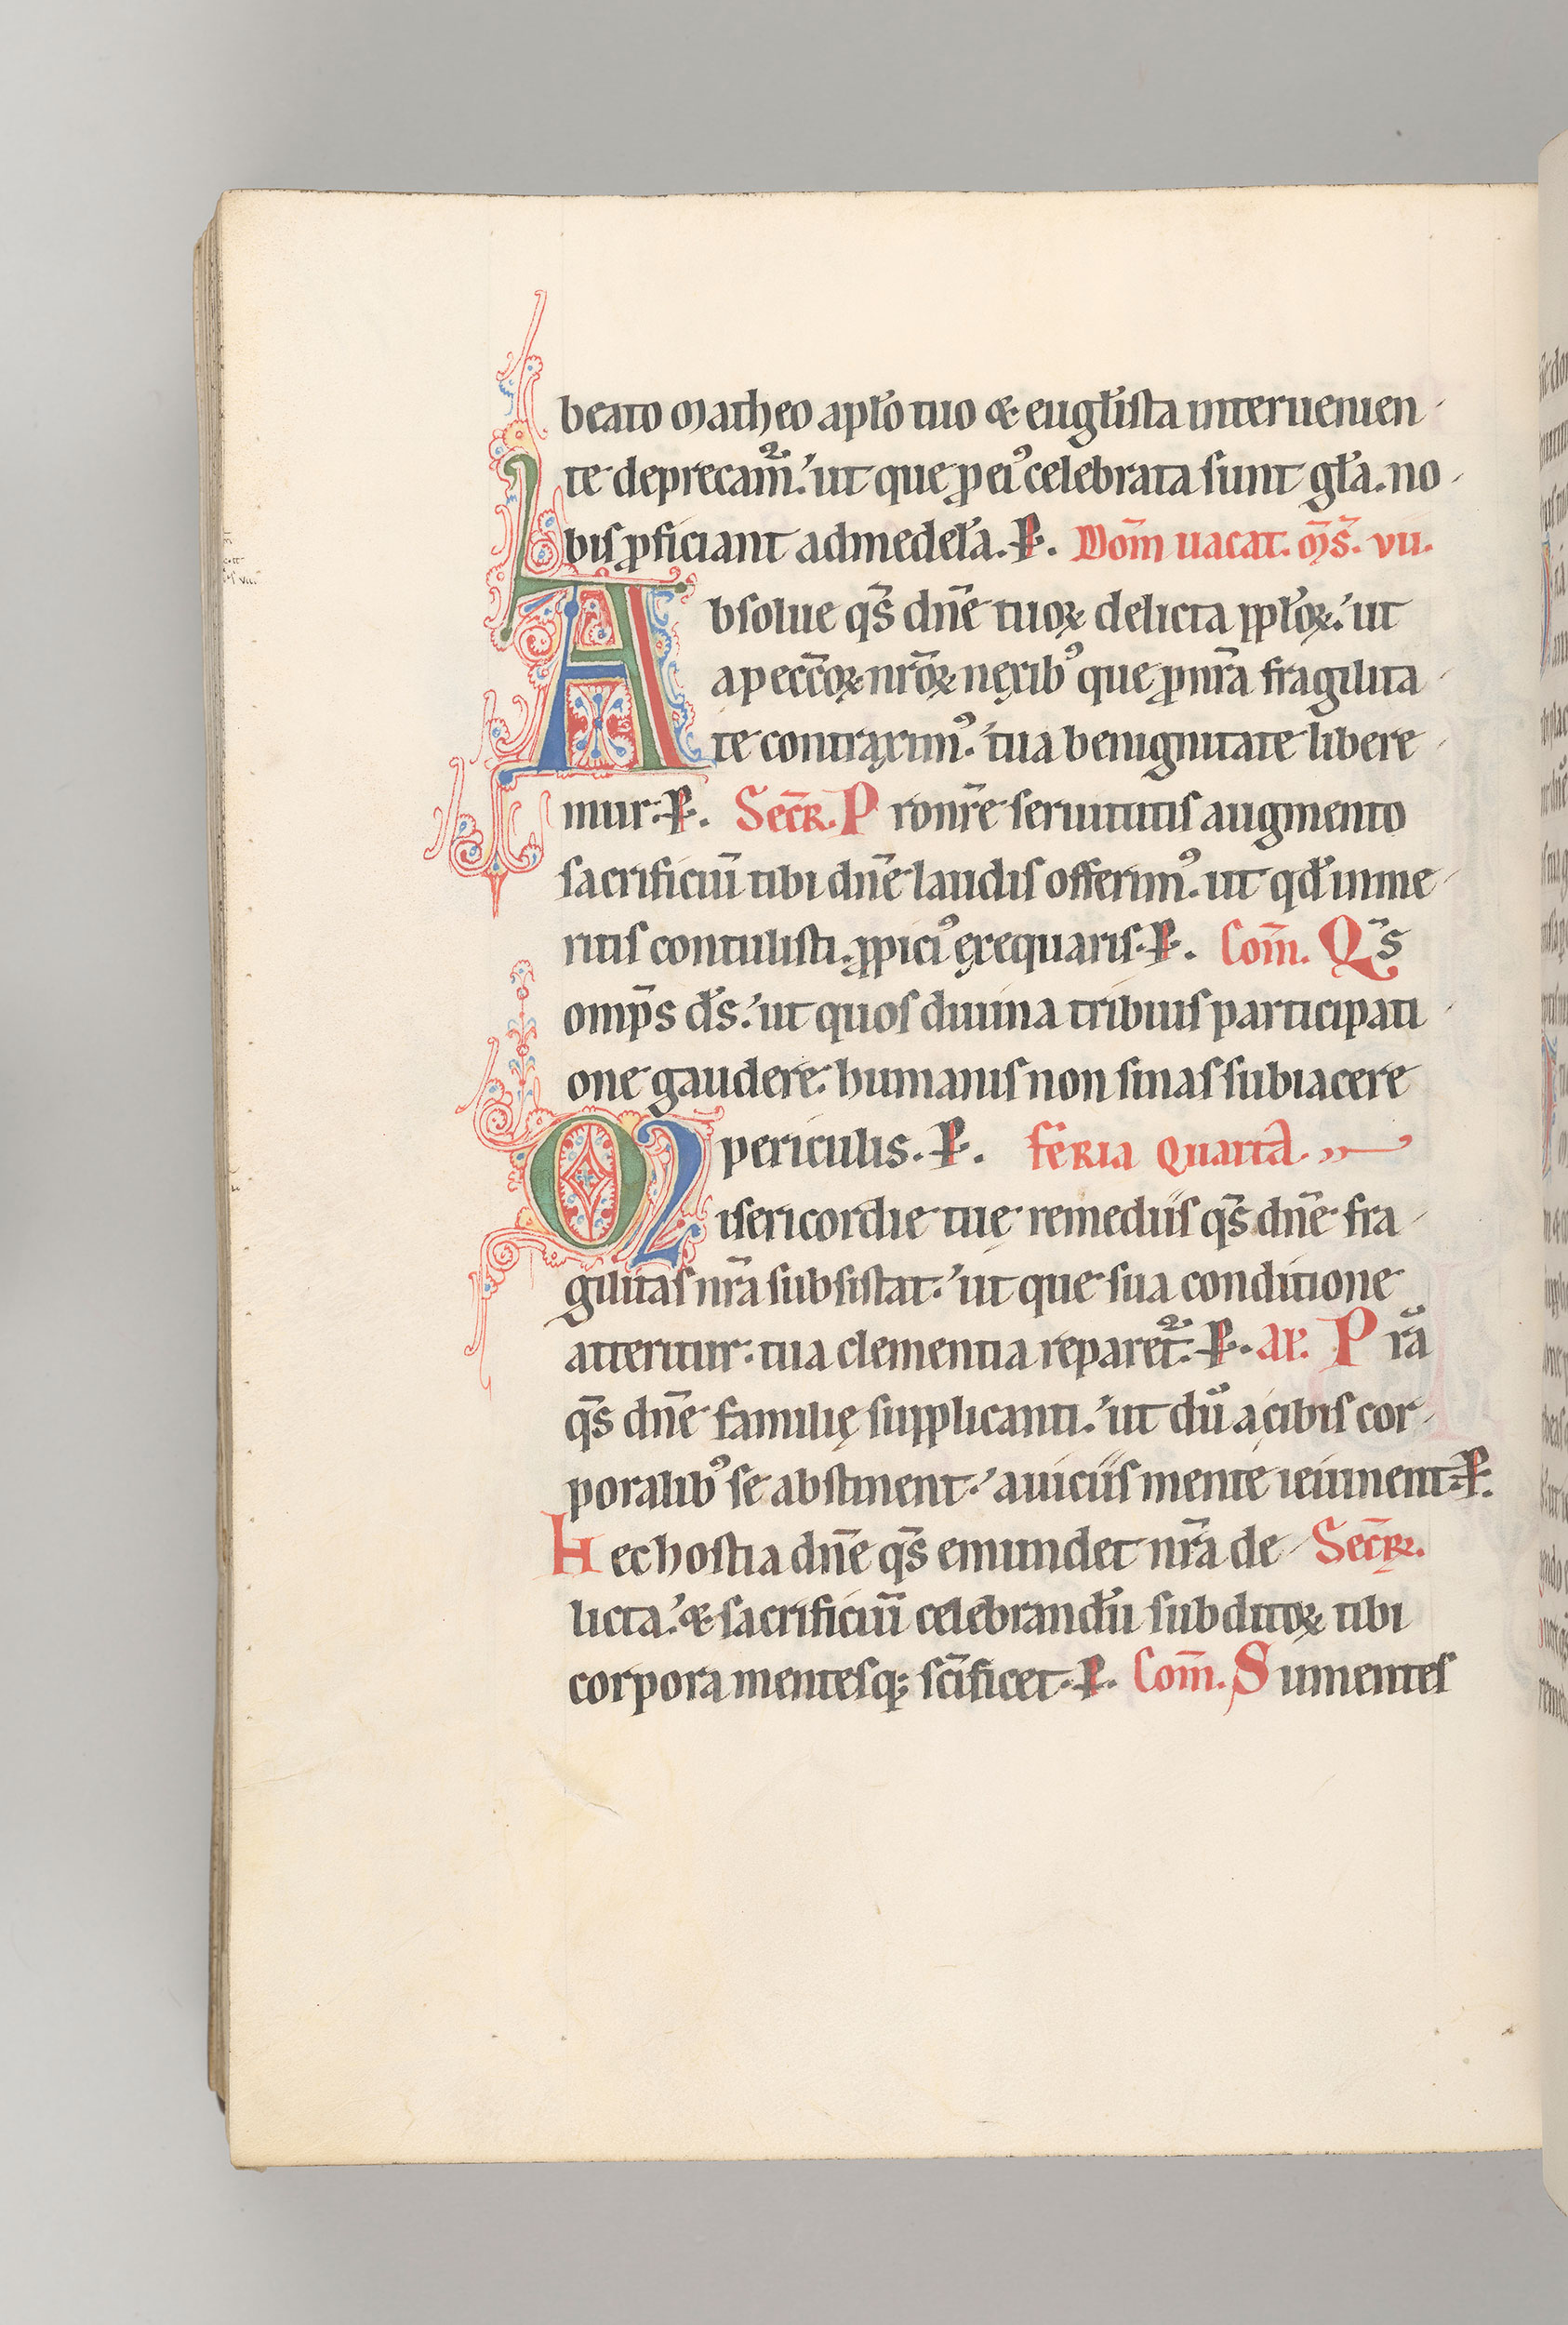 beato Matheo apl̄o tuo & eugl̄ista interuenien
te deprecam̄ᷣ. ut que ꝓ eiꝰ celebrata sunt gl̄a. no
bis ꝓficiant ad medel̄a. P. Dom̄ uacat. m̄s̄. vii.
Absolue q̄s dn̄e tuoꝝ delicta ppl̄oꝝ. ut
a pecc̄oꝝ nr̄oꝝ nexibꝰ que ꝓ nr̄a fragilita
te contraximꝰ. tua benignitate libere
mur. P. Secr̄. Pro nr̄e seruitutis augmento
sacrificiū tibi dn̄e laudis offerimꝰ. ut qd̄ inme
ritis contulisti. ꝓpiciꝰ exequaris. P. Com̄. Q̄s
omp̄s d̄s. ut quos diuina tribuis participati
one gaudere. humanis non sinas subiacere
periculis. P. feria quarta.
Misericordie tuę remediis q̄s dn̄e fra
gilitas nr̄a subsistat. ut que sua conditione
atteritur. tua clementia reparet᷑. P. al̄. Pr̄a
q̄s dn̄e familię supplicanti. ut dū a cibis cor
poralibꝰ se abstinent. a uiciis mente ieiunent. P.
Hec hostia dn̄e q̄s emundet nr̄a de Secr̄.
licta. & sacrificiū celebrandū subditoꝝ tibi
corpora mentesq; sc̄ificet. P. Com̄. Sumentes